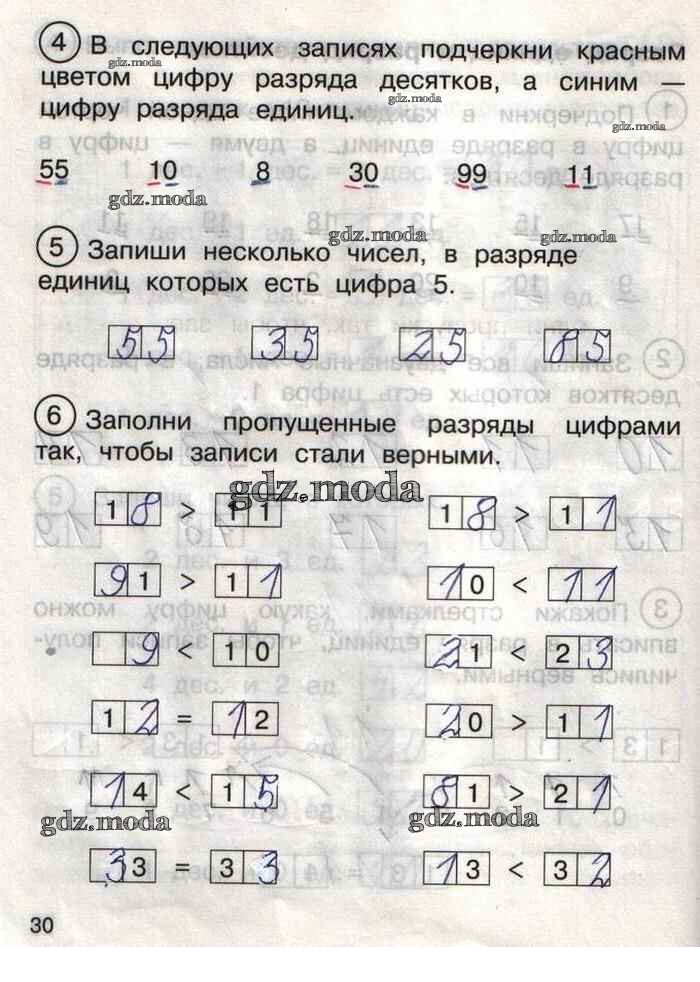 4 В следующих записях подчеркни красным
gdz.moda
цветом цифру разряда десятков, а синим —
gdz.moda
цифру разряда единиц.
gdz.moda
55 10 8 30 99 11
gdz.moda
gdz.moda
gdz.moda
5 Запиши несколько чисел, в разряде
единиц которых есть цифра 5.
55 35 25 85
6 Заполни пропущенные разряды цифрами
так, чтобы записи стали верными.
gdz.moda
18 > 11 18 > 11
91 > 11 10 < 11
9 < 10 21 < 23
12 = 12 20 > 11
14 < 15 81 > 21
gdz.moda gdz.moda
33 = 33 13 < 32
30